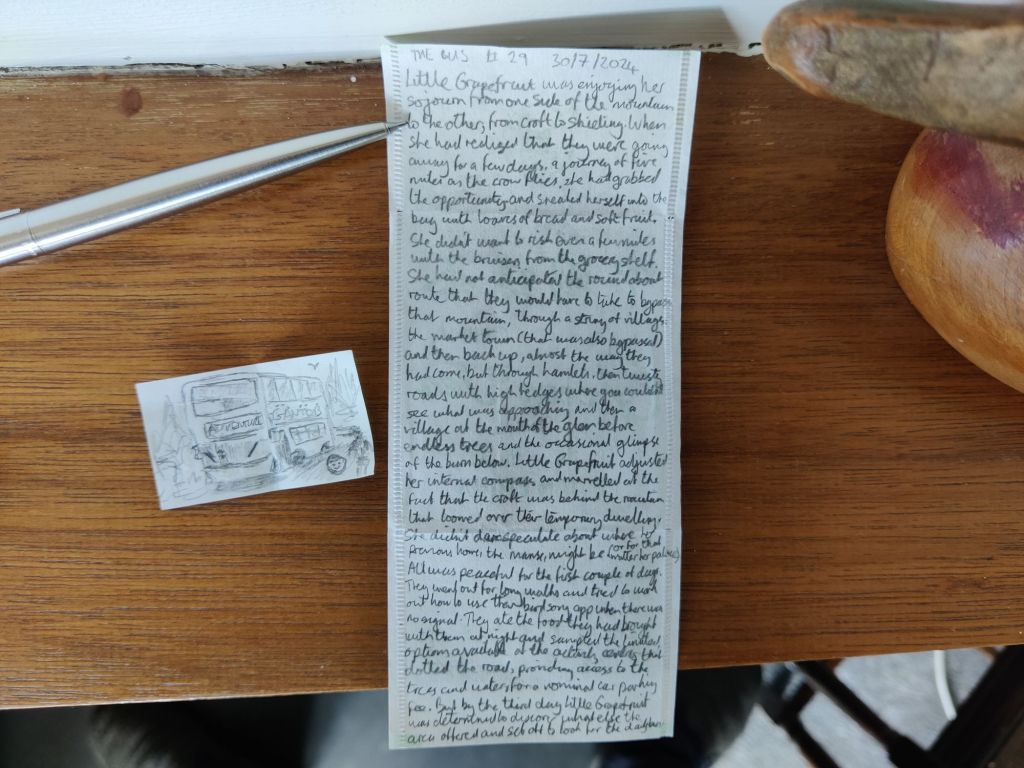 THE BUS LI 29 30/7/2024
Little Grapefruit was enjoying her
sojourn from one side of the mountain
to the other, from croft to shieling. When
she had realized that they were going
away for a few days, a journey of five
miles as the crow flies, she had grabbed
the opportunity and sneaked herself into the
bag with loaves of bread and soft fruit.
She didn't want to risk even a few miles
with the bruisers from the grocery shelf.
She had not anticipated the round about
route that they would have to take to bypass
that mountain, through a string of villages
the market town (that was also bypassed)
and then back up, almost the way they
had come, but through hamlets, then twisty
roads with high hedges where you couldn't
see what was approaching and then a
village at the mouth of the glen before
endless trees and the occasional glimpse
of the burn below. Little Grapefruit adjusted
her internal compass and marvelled at the
fact that the croft was behind the mountain
that loomed over their temporary dwelling.
She didn't dare speculate about where her
previous home, the manse, might be (or for that matter her palace)
All was peaceful for the first couple of days.
They went out for long walks and tried to work
out how to use their bird song app when there was
no signal. They ate the food they had brought
with them at night and sampled the limited
options available at the activity centres that
dotted the road, providing access to the
trees and water, for a nominal car parking
fee. But by the third day Little Grapefruit
was determined to discover what else the
area offered and set off to look for the
ADVENTURE